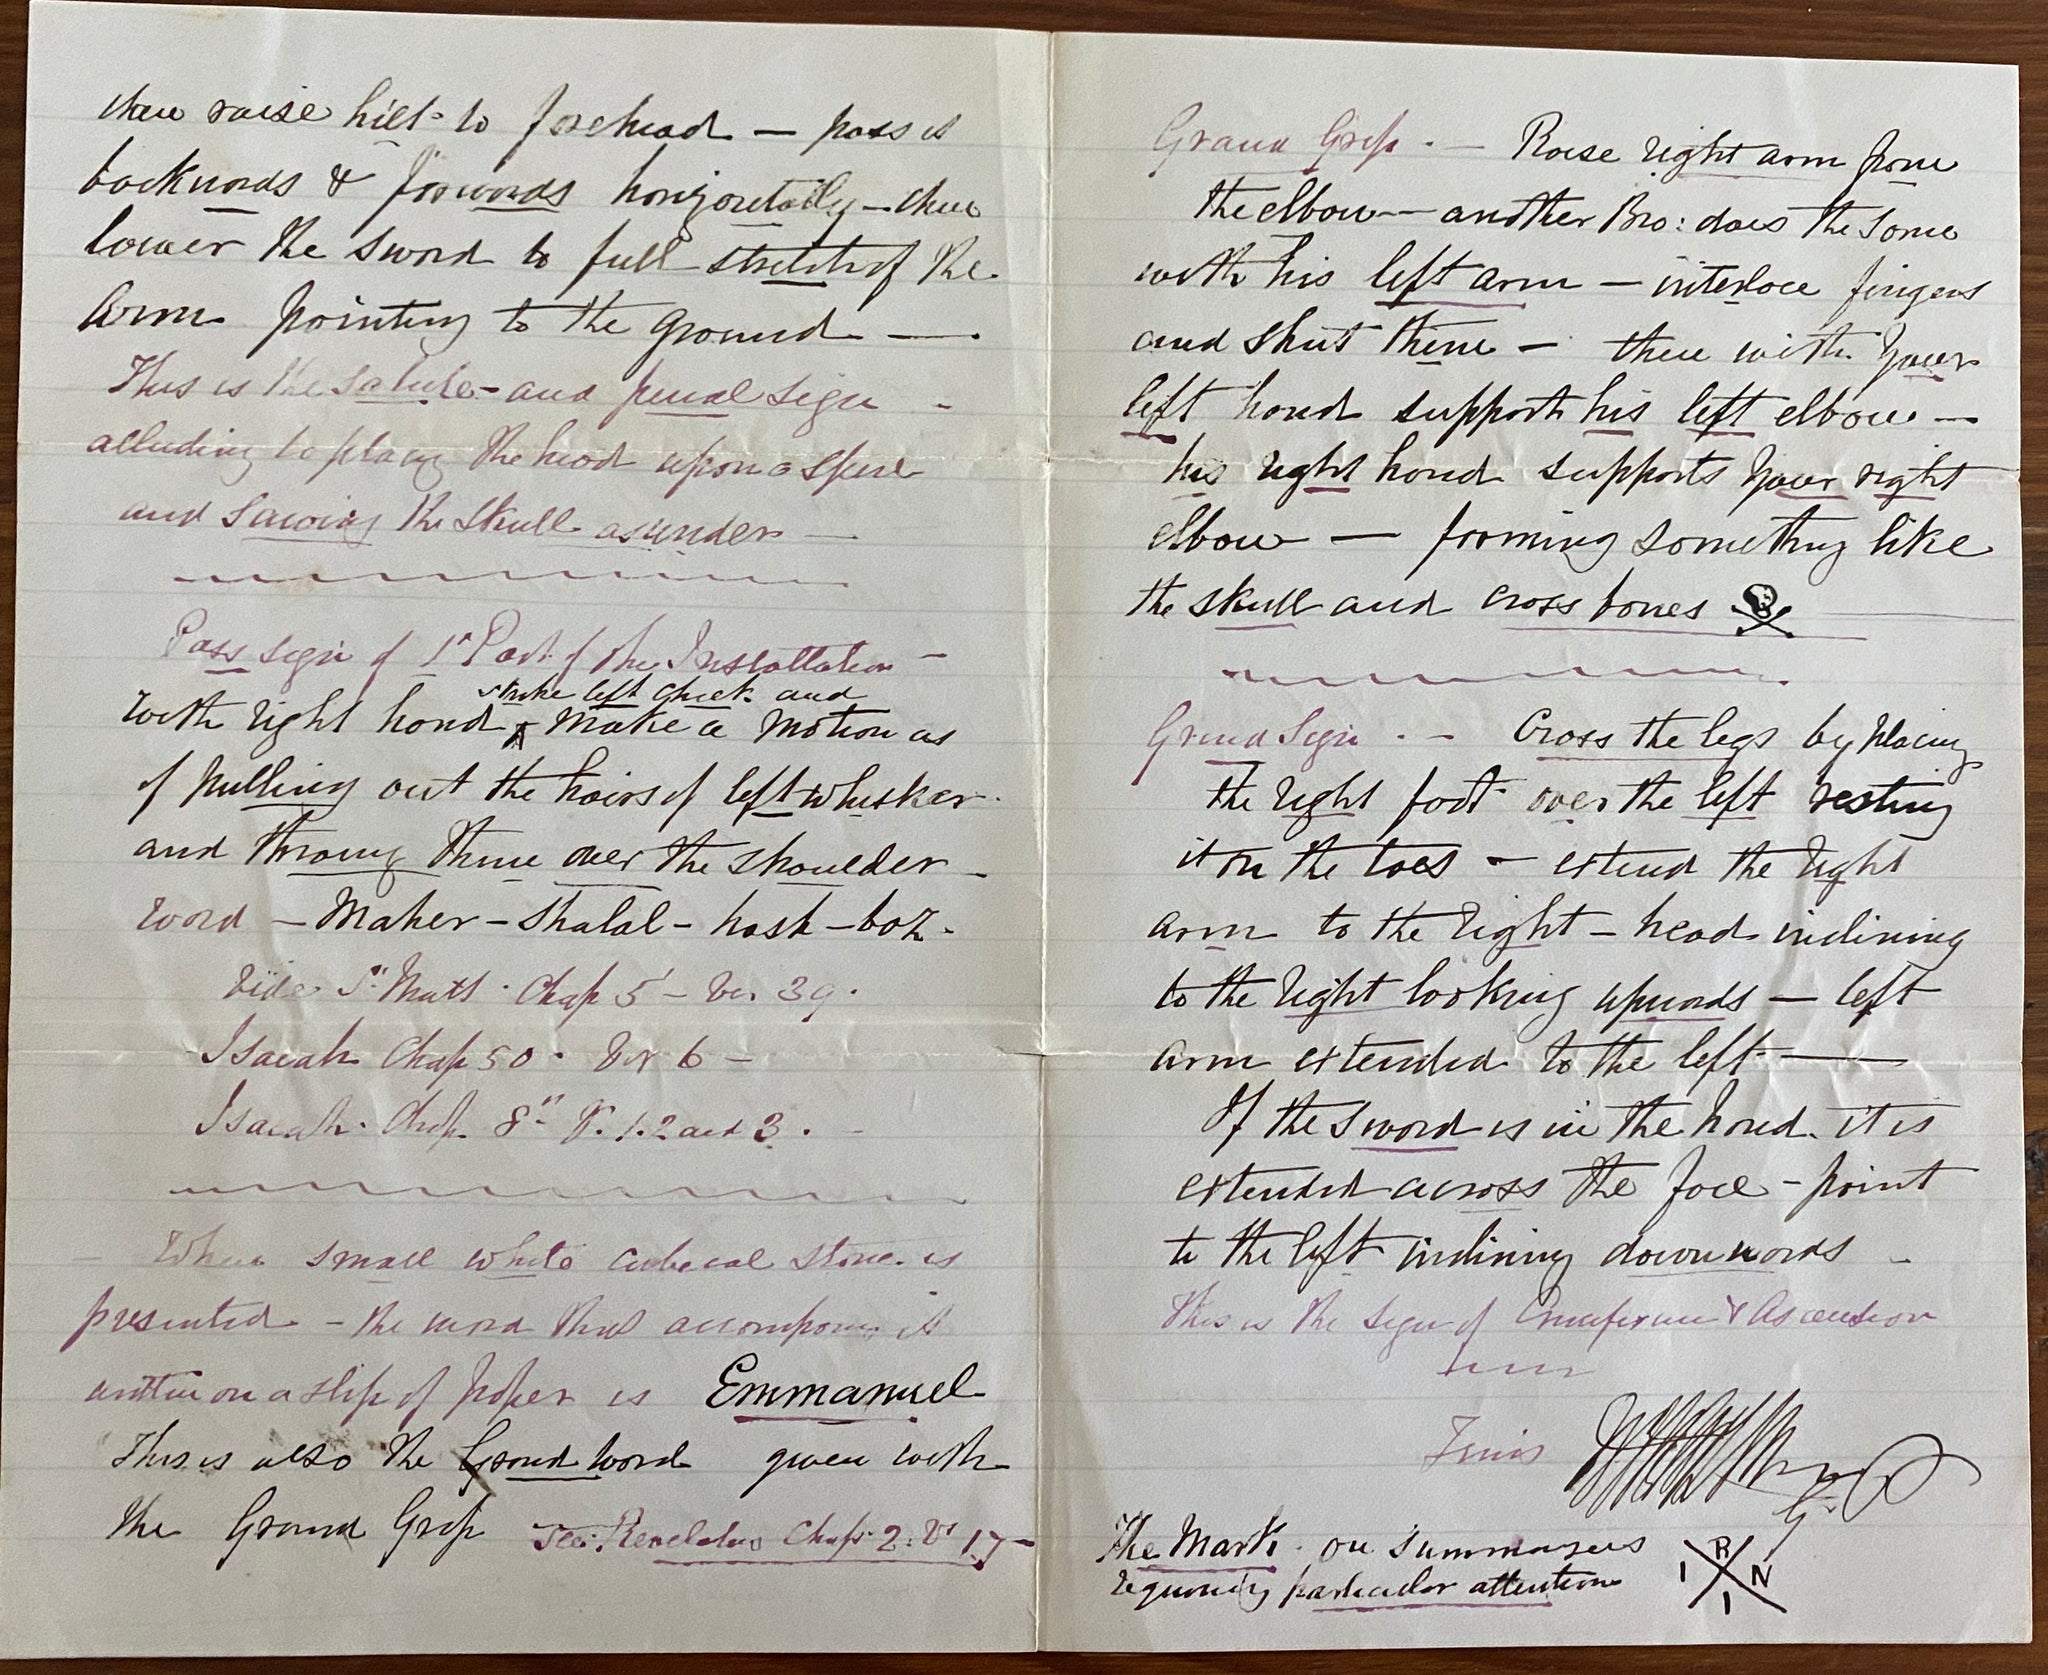 then raise hilt to forehead — pass it
backwards & forwards horizontally — then
lower the sword to full stretch of the
Arm pointing to the ground —
This is the salute - and penal sign -
alluding to placing the head upon a spire
and sawing the skull asunder —
Pass sign of 1st Part of the Installation —
strike left cheek and
with right hand ^ make a motion as
of pulling out the hairs of left whisker
and throwing them over the shoulder -
Word — Maher - Shalal - hash - baz.
Vide St Matt. Chap 5 - Ver 39.
Isaiah Chap 50. Ver 6 —
Isaiah. Chap. 8th V. 1. 2 and 3. -
- When small white cubical stone is
presented - the word that accompanies it
written on a slip of paper is Emmanuel
This is also the Grand word given with
the Grand Grip See: Revelations Chap. 2. Vs 17 -
Grand Grip. — Raise right arm from
the elbow — another Bro: does the same
with his left arm — interlace fingers
and shut them — then with your
left hand support his left elbow —
his right hand supports your right
elbow — forming something like
the skull and cross bones
Grand Sign. — Cross the legs by placing
the right foot over the left resting
it on the toes - extend the right
arm to the right - head inclining
to the right looking upwards — left
arm extended to the left —
If the sword is in the hand. it is
extended across the face - point
to the left inclining downwards -
This is the sign of Crucifixion & Ascension
Finis
The Mark. on summonses
requiring particular attention
R
I N
I